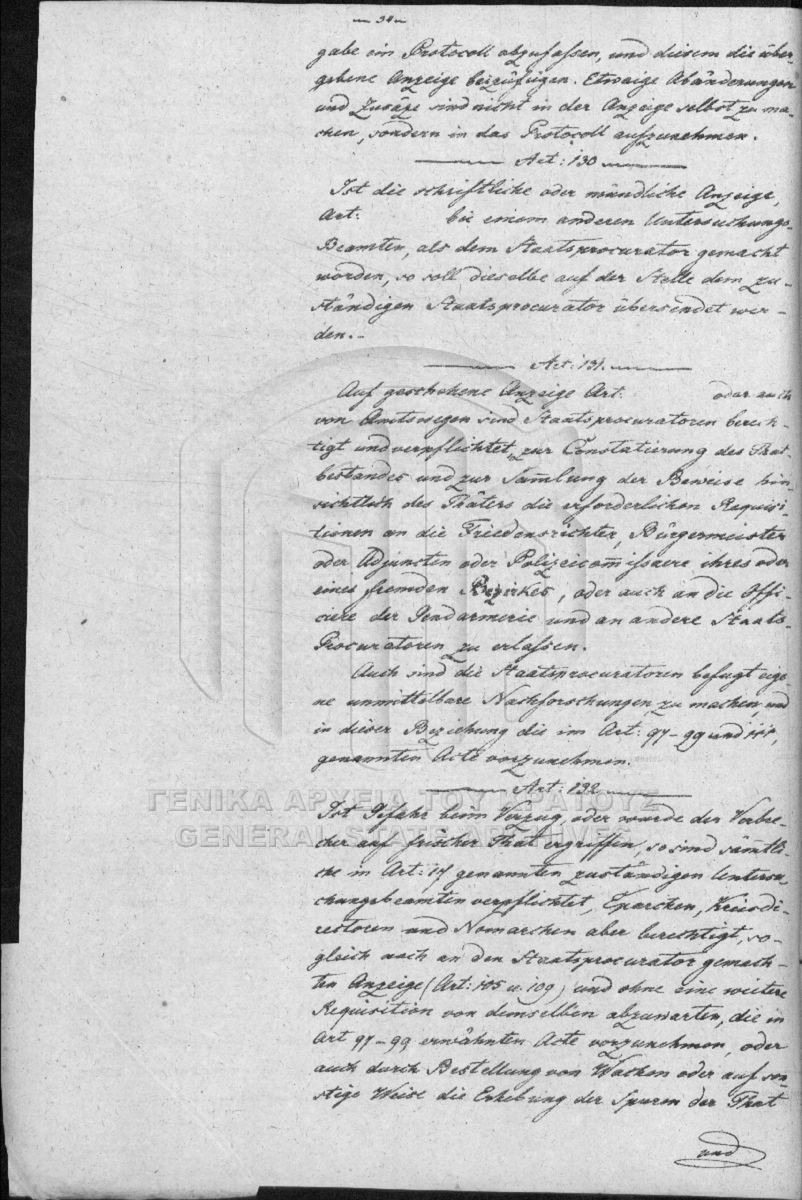 — 34 —
gabe ein Protocoll abzufassen, und diesem die über-
gebene Anzeige beizufügen. Etwaige Abänderungen
und Zusäze sind nicht in der Anzeige selbst zu ma-
chen, sondern in das Protocoll aufzunehmen.
Art: 130
Ist die schriftliche oder mündliche Anzeige,
Art: bei einem anderen Untersuchungs-
Beamten, als dem Staatsprocurator gemacht
worden, so soll dieselbe auf der Stelle dem zu-
ständigen Staatsprocurator übersendet wer-
den.-
Art: 131.
Auf geschehene Anzeige Art: oder auch
von Amtswegen sind Staatsprocuratoren berech-
tigt und verpflichtet, zur Constatierung des That-
bestandes und zur Samlung der Beweise hin-
sichtlich des Thäters die erforderlichen Requisi-
tionen an die Friedensrichter, Bürgermeister
oder Adjuncten oder Polizeicommissaere ihres oder
eines fremden Bezirkes, oder auch an die Offi-
ciere der Gendarmerie und an andere Staats-
Procuratoren zu erlassen.
Auch sind die Staatsprocuratoren befugt eige-
ne unmittelbare Nachforschungen zu machen, und
in dieser Beziehung die im Art: 97-99 und 111,
genannten Acte vorzunehmen.
Art: 132
ΓΕΝΙΚΑ ΑΡΧΕΙΑ ΤΟΥ ΚΡΑΤΟΥΣ
Ist Gefahr beim Verzug, oder wurde der Verbre-
GENERAL STATE ARCHIVES
cher auf frischer That ergriffen, so sind sämtli-
che in Art: 17 genannten zuständigen Untersu-
chungsbeamten verpflichtet, Eparchen, Kreisdi-
rectoren und Nomarchen aber berechtigt, so-
gleich nach an den Staatsprocurator gemach-
ten Anzeige (Art: 105 u. 109) und ohne eine weitere
Requisition von demselben abzuwarten, die in
Art 97-99 erwähnten Acte vorzunehmen, oder
auch durch Bestellung von Wachen oder auf son-
stige Weise die Erhebung der Spuren der That
und